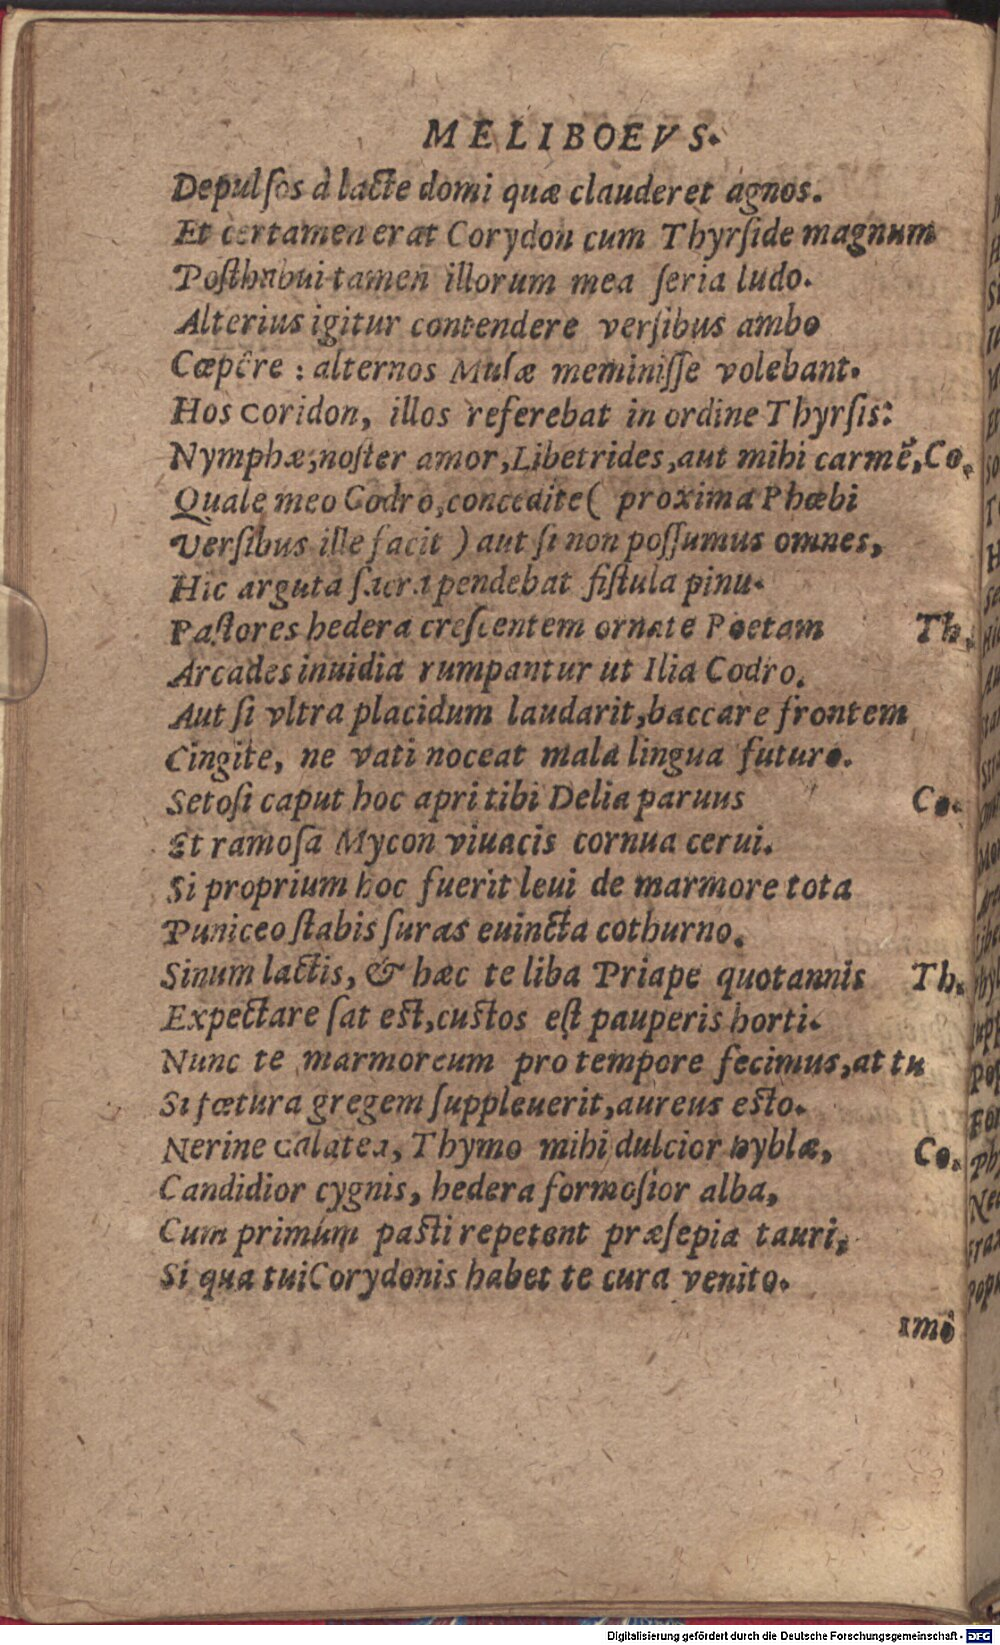 MELIBOEVS.
Depulſos à lacte domi quæ clauderet agnos.
Et certamen erat Corydon cum Thyrſide magnum
Poſthabui tamen illorum mea ſeria ludo.
Alterius igitur contendere verſibus ambo
Cœpêre : alternos Muſæ meminiſſe volebant.
Hos Coridon, illos referebat in ordine Thyrſis:
Nymphæ,noſter amor,Libetrides,aut mihi carmẽ, Co.
Quale meo Codro,concedite ( proxima Phœbi
Verſibus ille facit ) aut ſi non poſſumus omnes,
Hic arguta ſacra pendebat fiſtula pinu.
Paſtores hedera creſcentem ornate Poetam Th.
Arcades inuidia rumpantur ut Ilia Codro.
Aut ſi vltra placidum laudarit,baccare frontem
Cingite, ne vati noceat mala lingua futuro.
Setoſi caput hoc apri tibi Delia paruus Co.
Et ramoſa Mycon viuacis cornua cerui.
Si proprium hoc fuerit leui de marmore tota
Puniceo ſtabis ſuras euincta cothurno.
Sinum lactis, & hæc te liba Priape quotannis Th.
Expectare ſat eſt,cuſtos eſt pauperis horti.
Nunc te marmoreum pro tempore fecimus,at tu
Si fœtura gregem ſuppleuerit,aureus eſto.
Nerine Galatea, Thymo mihi dulcior hyblæ, Co.
Candidior cygnis, hedera formoſior alba,
Cum primùm paſti repetent præſepia tauri,
Si qua tui Corydonis habet te cura venito.
Imò
Digitalisierung gefördert durch die Deutsche Forschungsgemeinschaft - DFG